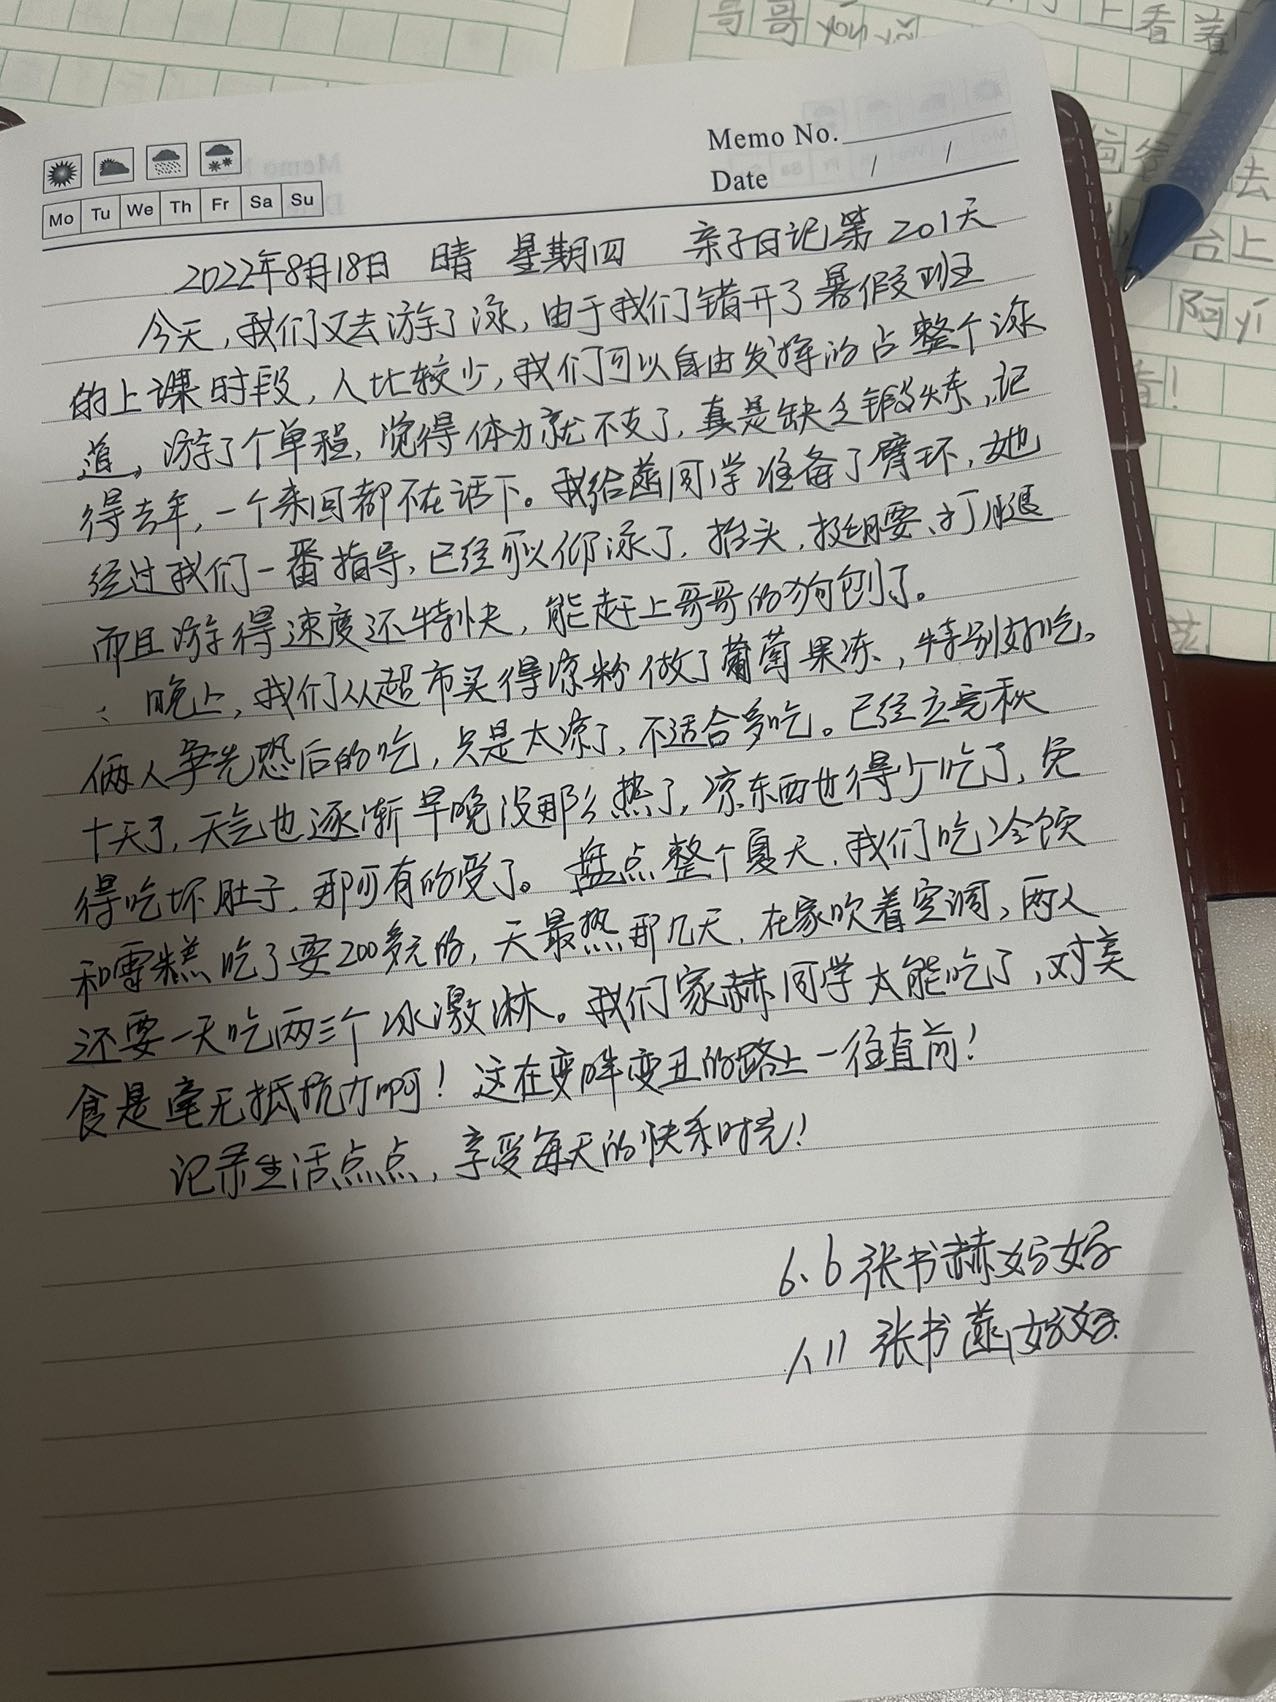 哥哥 yǒu 上看着
Memo No.
Date / /
Mo Tu We Th Fr Sa Su
2022年8月18日 晴 星期四 亲子日记第201天
今天,我们又去游了泳,由于我们错开了暑假班
的上课时段,人比较少,我们可以自由发挥的占整个泳
道,游了个单程,觉得体力就不支了,真是缺乏锻炼,记
得去年,一个来回都不在话下。我给菡同学准备了臂环,她
经过我们一番指导,已经可以仰泳了,抬头,挺腰、打腿
而且游得速度还特快,能赶上哥哥的狗刨了。
晚上,我们从超市买得凉粉做了葡萄果冻,特别好吃。
俩人争先恐后的吃,只是太凉了,不适合多吃。已经立完秋
十天了,天气也逐渐早晚没那么热了,凉东西也得少吃了,免
得吃坏肚子,那可有的受了。盘点整个夏天,我们吃冷饮
和雪糕吃了要200多元的,天最热那几天,在家吹着空调,两人
还要一天吃两三个冰激淋。我们家赫同学太能吃了,对美
食是毫无抵抗力啊!这在变胖变丑的路上一往直前!
记录生活点点,享受每天的快乐时光!
6.6张书赫妈妈
1.11 张书菡妈妈
去
台上
阿